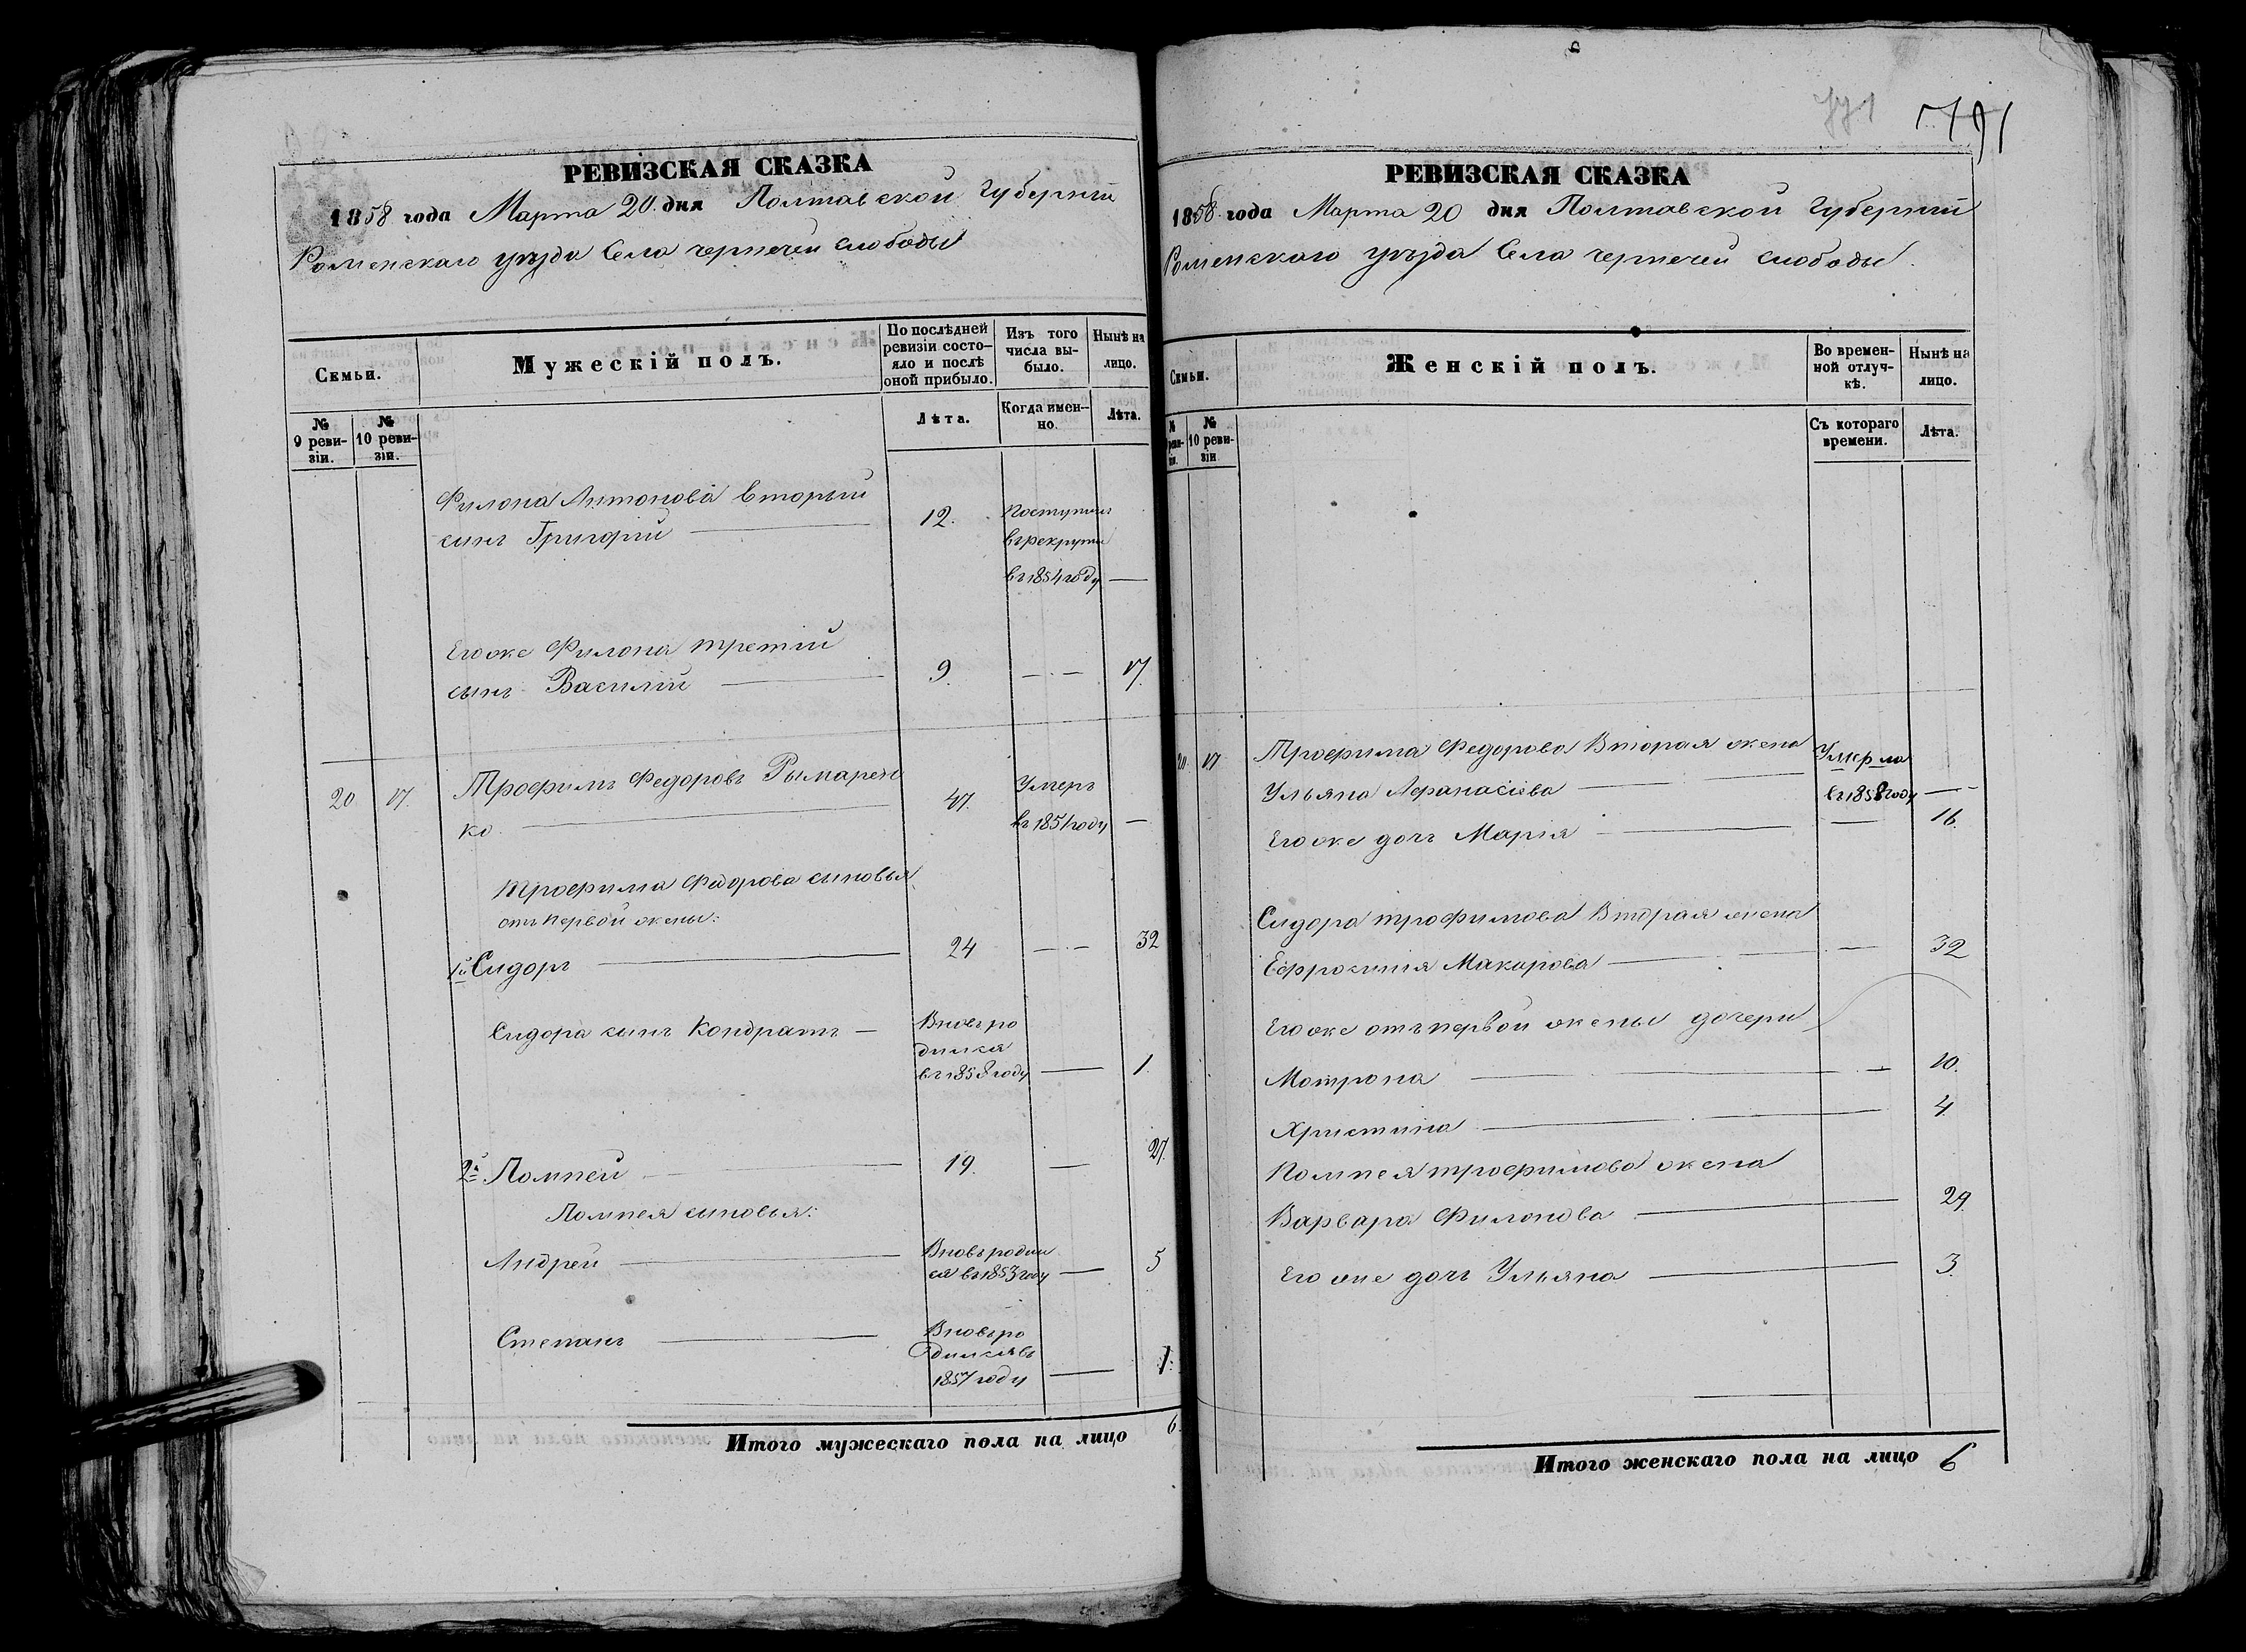 РЕВИЗСКАЯ СКАЗКА
1858 года Марта 20 дня Полтавской Губерніи
Роменскаго уѣзда Села чернечей слободы
Семьи.
Мужескій полъ.
По послѣдней ревизіи состояло и послѣ оной прибыло.
Изъ того числа выбыло.
Нынѣ на лицо.
№ 9 ревизіи.
№ 10 ревизіи.
Лѣта.
Когда именно.
Лѣта.
Филона Антонова вторый
сынъ Григорій 12.
Поступилъ
въ рекруты
въ 1854 году —
Егоже Филона третій
сынъ Василій 9. — 17.
20 17. Трофимъ Федоровъ Рымарен
ко. 47. Умеръ
въ 1851 году —
Трофима Федорова сыновья
отъ первой жены:
1й Сидоръ 24 — 32
Сидора сынъ Кондратъ —
Вновь ро
дился
въ 1858 году — 1.
2й Помпей 19. — 27.
Помпея сыновья:
Андрей
Вновь родил
ся въ 1853 году — 5
Степанъ
Вновь ро
дился въ
1857 году — 1.
Итого мужескаго пола на лицо 6.
771 791
РЕВИЗСКАЯ СКАЗКА
1858 года Марта 20 дня Полтавской Губерніи
Роменскаго уѣзда Села чернечей слободы.
Семьи.
Женскій полъ.
Во временной отлучкѣ.
Нынѣ на лицо.
№ ревизіи.
№ 10 ревизіи
Съ котораго времени.
Лѣта.
20. 17 Трофима Федорова Вторая жена
Ульяна Афанасіева
Умерла
въ 1858 году —
Егоже дочь Марія — 16.
Сидора трофимова Вторая жена
Ефросинія Макарова — 32
Егоже отъ первой жены дочери
Мотрона — 10.
Христина 4.
Помпея трофимова жена
Варвара Филонова 29
Егоже дочь Ульяна 3.
Итого женскаго пола на лицо 6